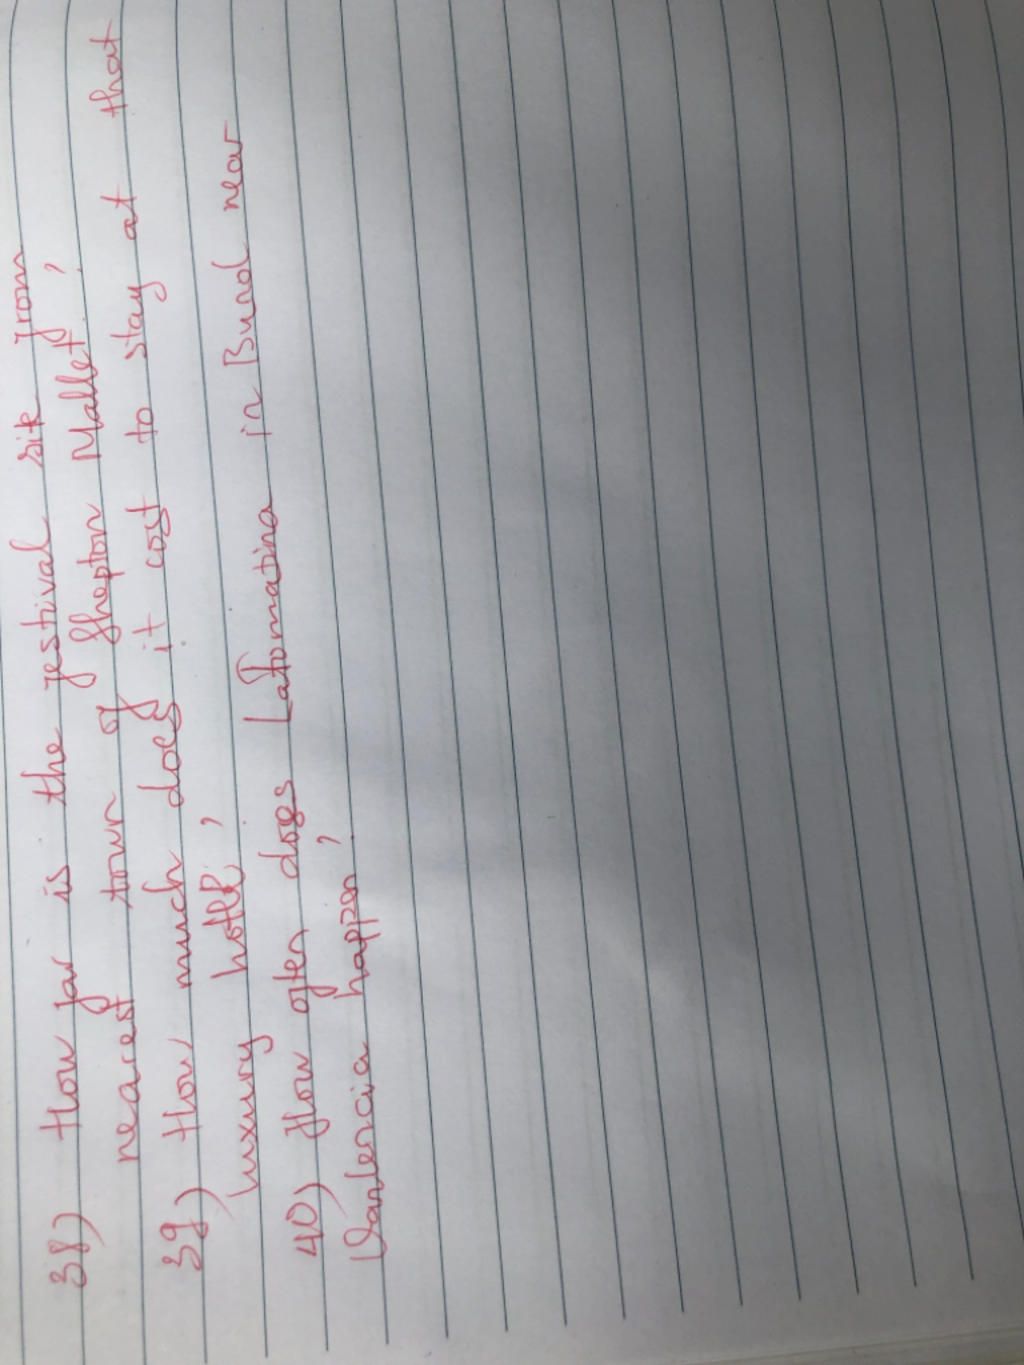 38) How far is the festival site from
nearest town of Shepton Mallet?
39) How much does it cost to stay at that
luxury hotel?
40) How often does LaTomatina in Bunol near
Vanlencia happen?